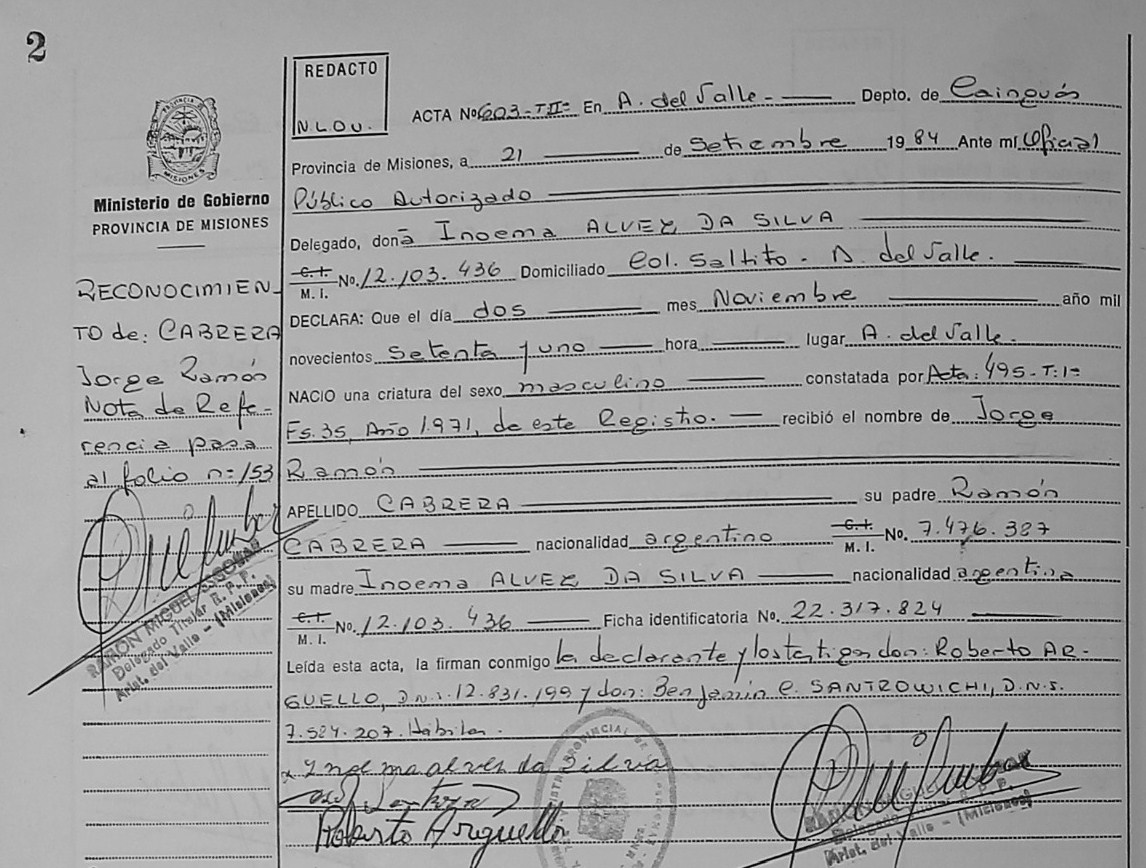 2
REDACTO
N.L.O.U.
ACTA No 603-T II= En A. del Valle.- Depto. de Cainguás
Provincia de Misiones, a 21 de Setiembre 1984 Ante mí Oficial
Público Autorizado
Delegado, donã Inoema ALVEZ DA SILVA
C.I. M.I. No. 12.103.436 Domiciliado Col. Saltito - A. del Valle.
DECLARA: Que el día dos mes Noviembre año mil
novecientos setenta y uno hora lugar A. del Valle.
NACIO una criatura del sexo masculino constatada por Acta: 495-T:I=
Fs. 35, Año 1.971, de este Registro. recibió el nombre de Jorge
Ramón
APELLIDO CABRERA su padre Ramón
CABRERA nacionalidad argentino C.I. M.I. No. 7.476.327
su madre Inoema ALVEZ DA SILVA nacionalidad argentina
C.I. M.I. No. 12.103.436 Ficha identificatoria No. 22.317.824
Leída esta acta, la firman conmigo la declarante y los testigos don: Roberto AR-
GUELLO, D.N.I. 12.831.199 y don: Benjamín C. SANTROWICHI, D.N.I.
7.524.207. Hábiles.
Roberto Arguello
PROVINCIA DE
MISIONES
Ministerio de Gobierno
PROVINCIA DE MISIONES
RECONOCIMIEN-
TO de: CABRERA
Jorge Ramón
Nota de Refe-
rencia pasa
al folio n=153
RAMÓN MIGUEL ESCOBAR
Delegado Titular R. P. P.
Arist. del Valle - (Misiones)
Arist. del Valle - (Misiones)